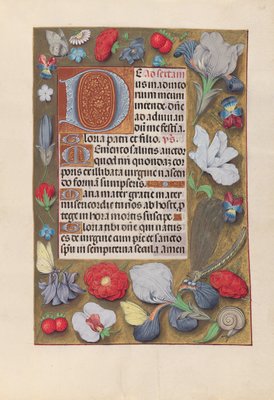 E ao sextam
us in adiuto
rium meum
intende. dñe
ad adiuuan
dū me festīa.
Gloria patri et filio. ys.
Memento salutis auctor
quod nr̄i quondā cor
poris ex illibata virgine nascen
do formā sumpseris.
Maria mater gratie mater
misericordie tu nos ab hoste pro
tege in hora mortis suscipe.
Gloria tibi dn̄e qui natus
es de virgine cum pr̄e et sancto
sp̄u in sempiterna secula amen